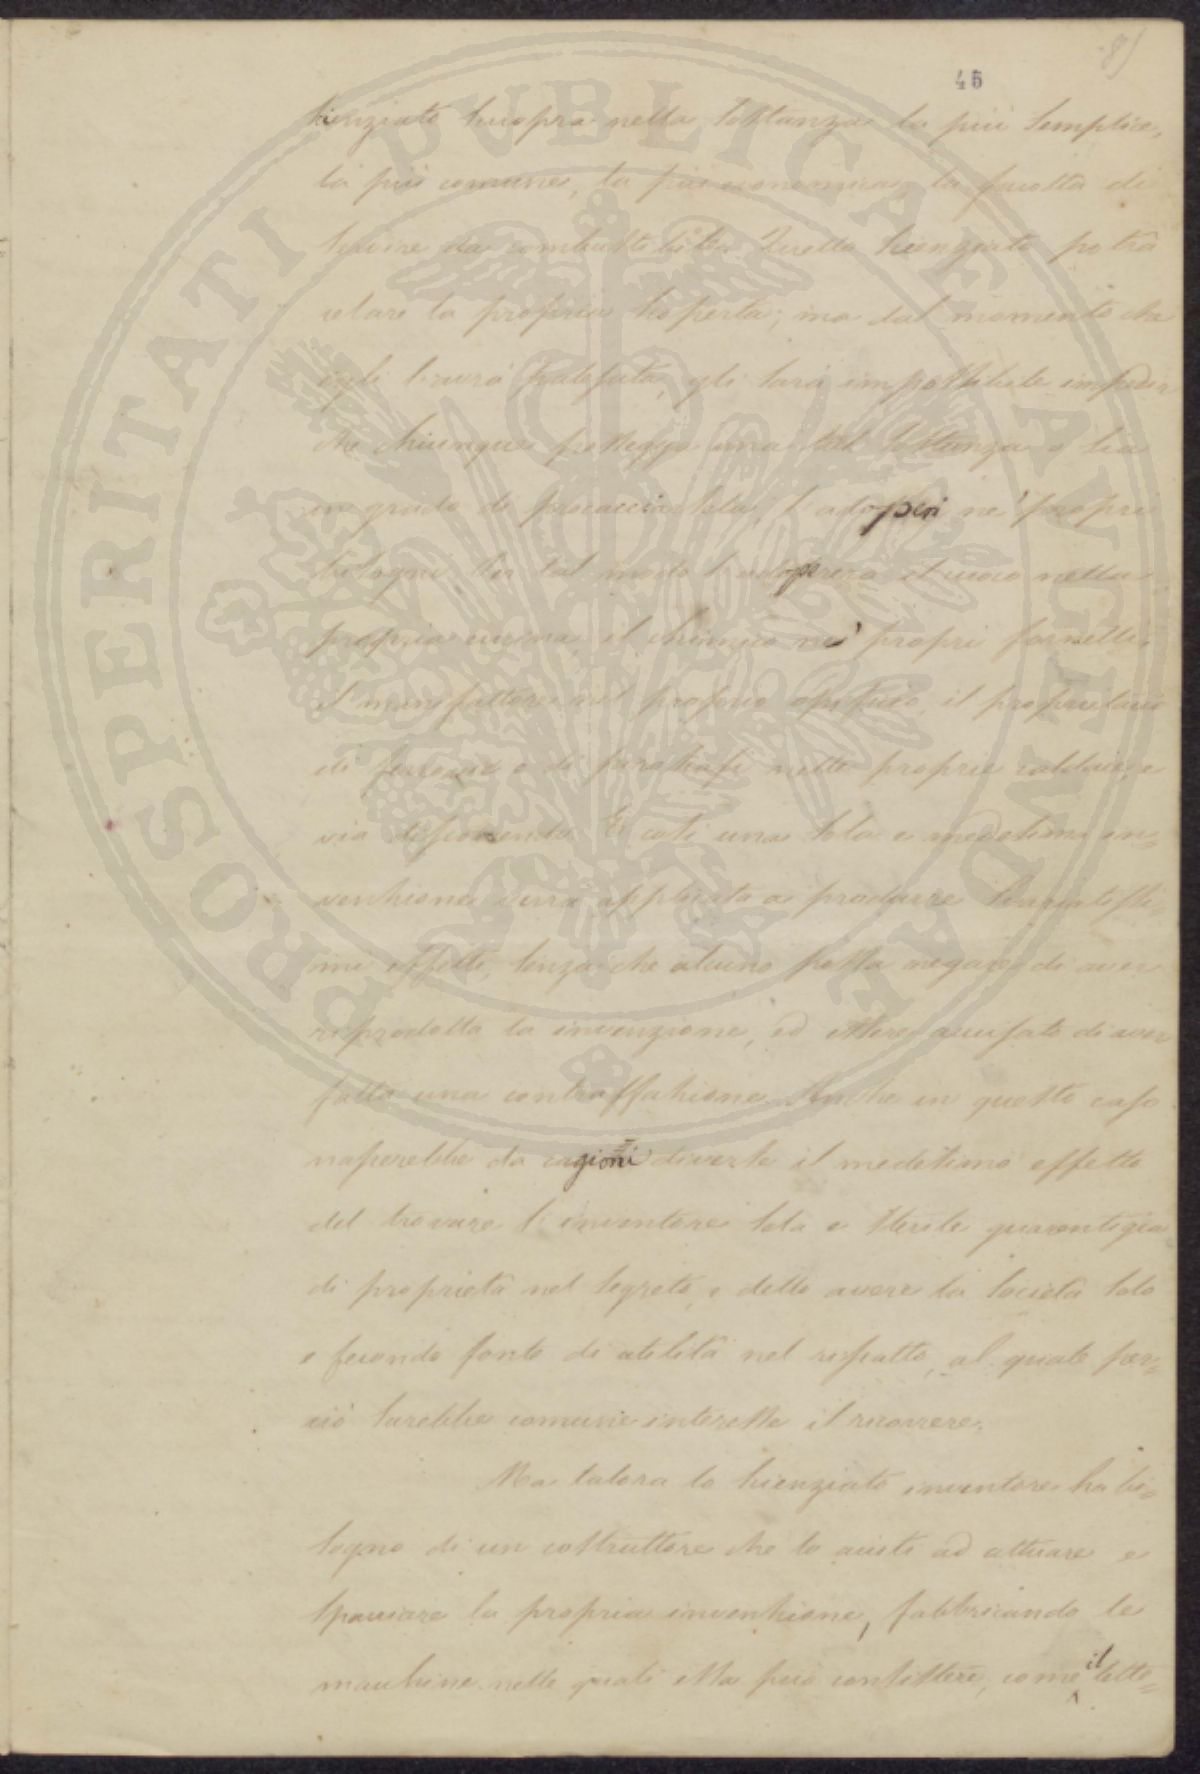 85
45
scienziato scuopra nella sostanza la più semplice,
la più comune, la più economica, la facoltà di
servire da combustibile. Quello scienziato potrà
celare la propria scoperta; ma dal momento che
egli l'avrà palesata, gli sarà impossibile impedire
che chiunque possegga una tal sostanza o sia
in grado di procacciarsela, l'adoperi ne' propri
bisogni. Per tal modo l'adoprerà il cuoco nella
propria cucina, il chimico ne' propri fornelli,
il manifattore nel proprio opificio, il proprietario
di ferrovie e di piroscafi nelle proprie caldaie, e
via discorrendo. E così una sola e medesima in=
venzione verrà applicata a produrre svariatissi=
mi effetti, senza che alcuno possa negare di aver
riprodotta la invenzione, ed essere accusato di aver
fatta una contraffazione. Anche in questo caso
nascerebbe da cagioni diverse il medesimo effetto
del trovare l'inventore sola e sterile guarentigia
di proprietà nel segreto, e dello avere la società solo
e fecondo fonte di utilità nel riscatto, al quale per=
ciò sarebbe comune interesse il ricorrere.
Ma talora lo scienziato inventore ha bi=
sogno di un costruttore che lo aiuti ad attuare e
spacciare la propria invenzione, fabbricando le
macchine nelle quali essa può consistere, come il tele=
PROSPERITATI PUBLICAE AUGENDAE